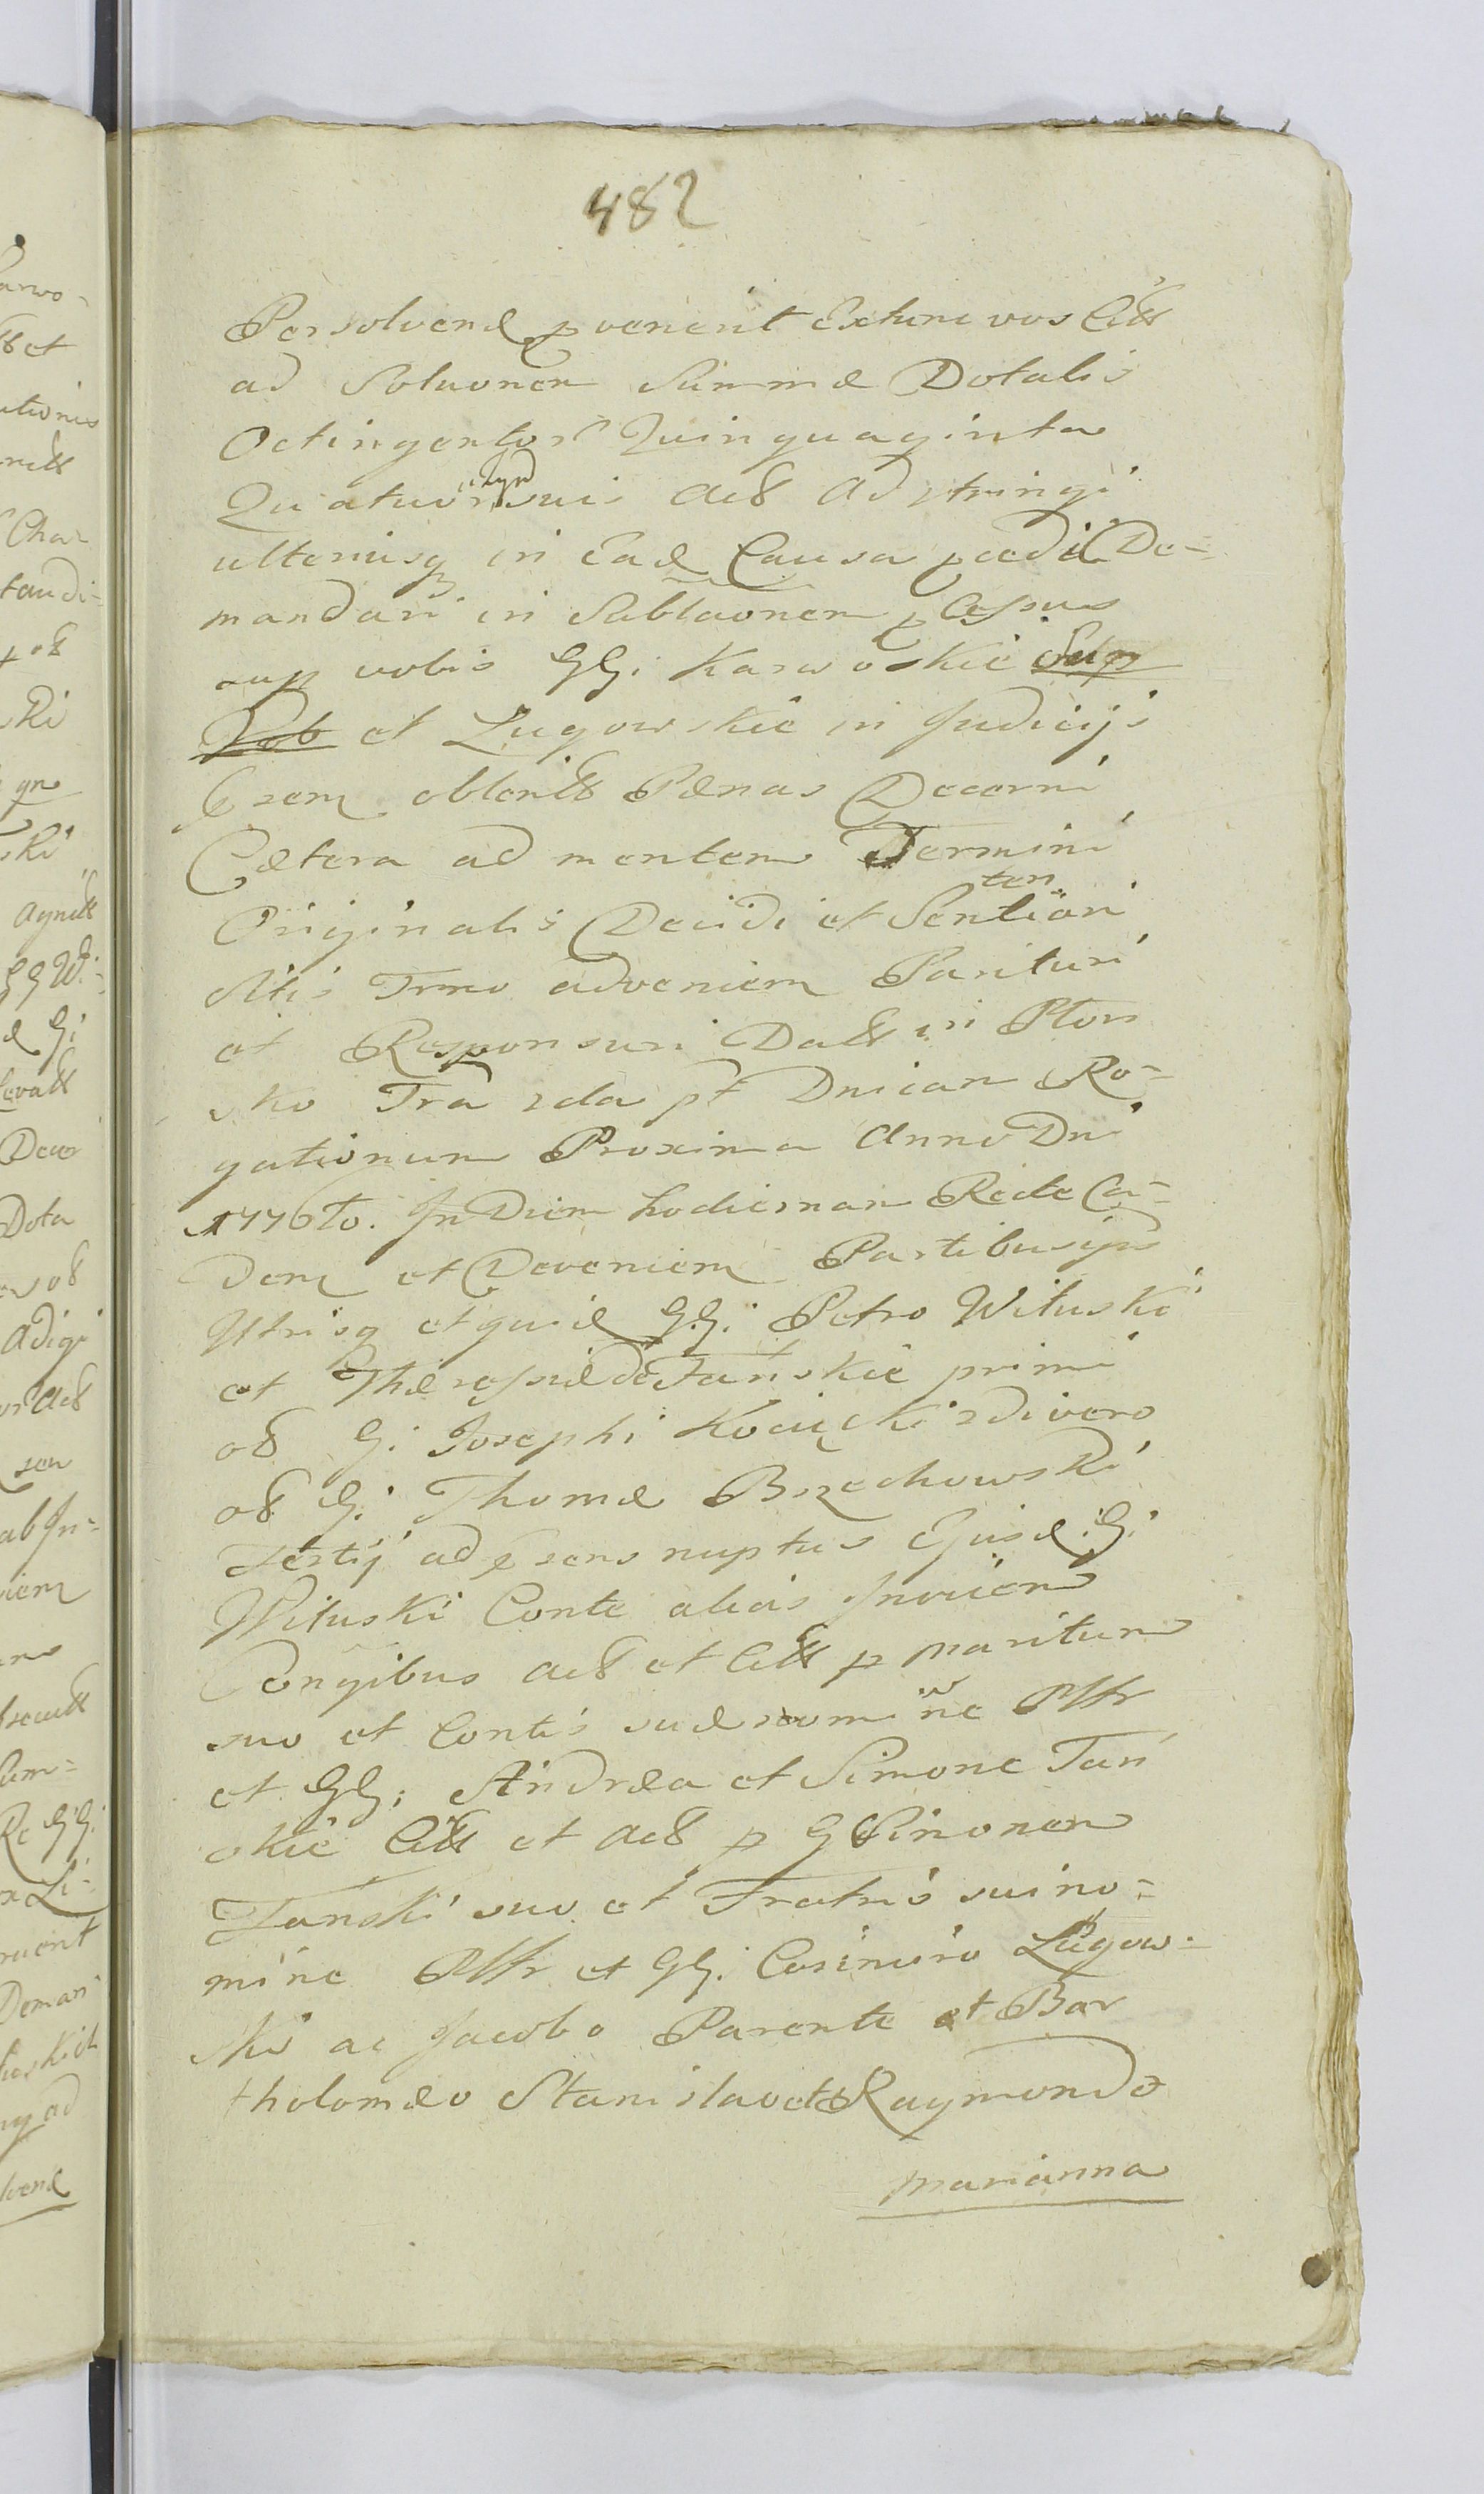 482
Persolvend pvenerit Extunc vos Citt
ad Soluonem Summæ Dotalis
Octingentor Quinquaginta
Quatuor suis Act Adstringi
ulteriusq in Ead Causa pcedi De-
mandari in Sublaonem pcessus
sup vobis GG: Karwoskie Sup
Vob et Lugowskie in Judicijs
obtent Pænas Decerni
Cætera ad mentem Termini
Originalis Decidi et Sentiari
ten
Sitis Trno advenien Parituri
et Responsuri Datt in Plon
sko Fria 2da pt Dnicam Ro-
gationum Proxima Anno Dni
1776to. In Diem hodiernam Recte Ca-
den et Devenien Partibusqz
Utrisq etquid GG: Petro Wituski
et Theressia de Tanskie primi
G: Josephi Kocięcki 2di vero
G: Thomæ Brzechowski
Tertij ad psens nuptus Ejusd G:
Wituski Conte alias Invicem
Congibus act et Citt p maritum
suo et Contis suæ nomine
et GG: Andræa et Simone Tan
skie Citt et act p G Simonem
Tanski suo et Fratris sui no-
mine et GG: Casimiro Lugow-
ski ac Jacobo Parente et Bar
tholomæo Stanislao et Raymondo
Marianna